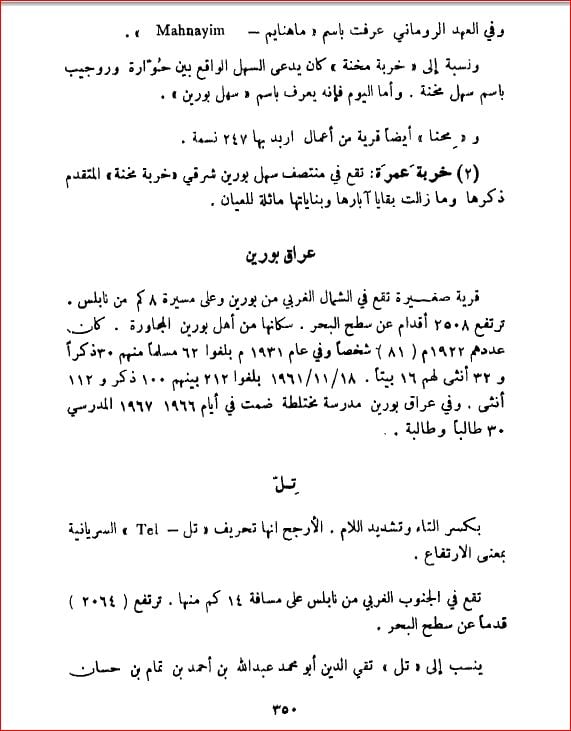 وفي العهد الروماني عرفت باسم « ماهنايم – Mahnayim » .
ونسبة إلى « خربة مخنة » كان يدعى السهل الواقع بين حُوّارة وروجيب
باسم سهل مخنة . وأما اليوم فإنه يعرف باسم « سهل بورين » .
و « مِحنا » أيضاً قرية من أعمال اربد بها ٢٤٧ نسمة .
(٢) خربة عَمرَة : تقع في منتصف سهل بورين شرقي «خربة مخنة» المتقدم
ذكرها وما زالت بقايا آبارها وبناياتها ماثلة للعيان .
عراق بورين
قرية صغيرة تقع في الشمال الغربي من بورين وعلى مسيرة ٨ كم من نابلس .
ترتفع ٢٥٠٨ أقدام عن سطح البحر . سكانها من أهل بورين المجاورة . كان
عددهم ١٩٢٢م ( ٨١ ) شخصاً وفي عام ١٩٣١ م بلغوا ٦٢ مسلماً منهم ٣٠ ذكراً
و ٣٢ أنثى لهم ١٦ بيتاً . ١٩٦١/١١/١٨ بلغوا ٢١٢ بينهم ١٠٠ ذكر و ١١٢
أنثى . وفي عراق بورين مدرسة مختلطة ضمت في أيام ١٩٦٦ ١٩٦٧ المدرسي
٣٠ طالباً وطالبة .
تِلّ
بكسر التاء وتشديد اللام . الأرجح انها تحريف « تل – Tel » السريانية
بمعنى الارتفاع .
تقع في الجنوب الغربي من نابلس على مسافة ١٤ كم منها . ترتفع ( ٢٠٦٤ )
قدماً عن سطح البحر .
ينسب إلى « تل » تقي الدين أبو محمد عبدالله بن أحمد بن تمام بن حسان
٣٥٠